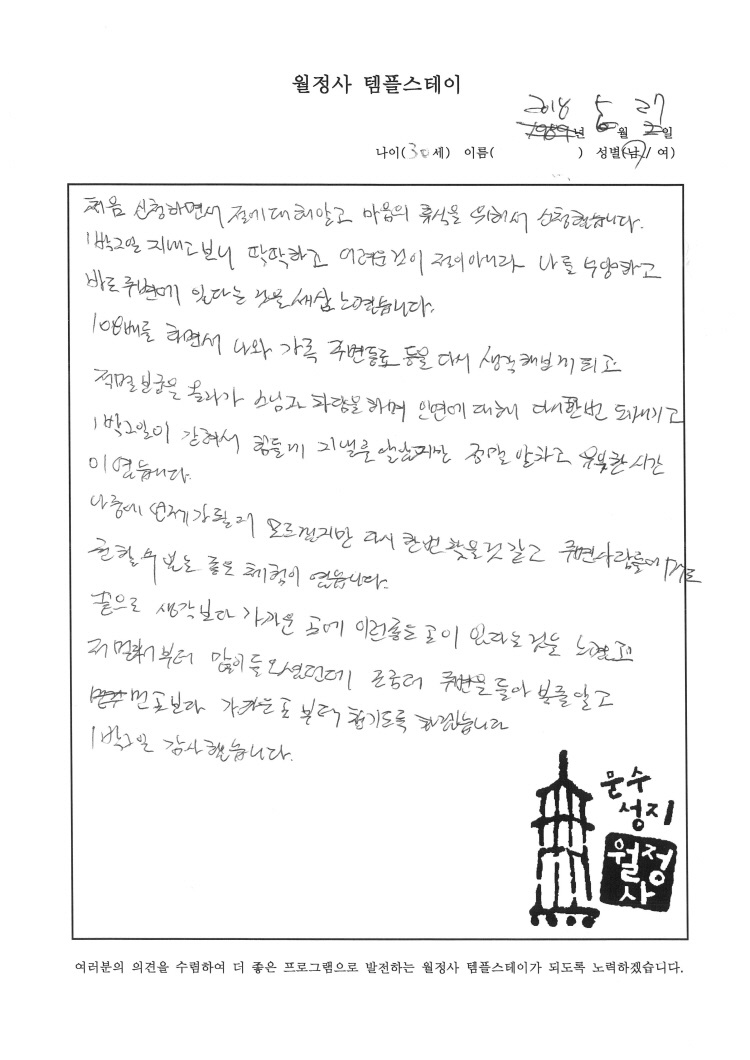 월정사 템플스테이
2018 5 27
1989년 6월 2일
나이(30세) 이름( ) 성별(남/여)
처음 신청하면서 절에대해알고 마음의 휴식을 위해서 신청했습니다.
1박2일 지내고보니 딱딱하고 어려운것이 절이아니라 나를 수양하고
바로 주변에 있다는 것을 새삼 느꼈습니다.
108배를 하면서 나와 가족 주변동료 등을 다시 생각해보게 되고
적멸보궁을 올라가 스님과 차담을하며 인연에 대해 다시한번 되새기고
1박2일이 갇혀서 힘들게 지낼줄알았지만 정말 알차고 유복한 시간
이였습니다.
나중에 언제가될지 모르겠지만 다시 한번 찾을것 같고 주변사람들에게도
추천할수 있는 좋은 체험이 였습니다.
끝으로 생각보다 가까운 곳에 이런좋은 곳이 있다는 것을 느꼈고
저 멀리서부터 많이들오셨던데 주변을 돌아 볼줄알고
먼곳보다 가까운곳 부터 챙기도록 하겠습니다
1박2일 감사했습니다.
문수
성지
월정
사
여러분의 의견을 수렴하여 더 좋은 프로그램으로 발전하는 월정사 템플스테이가 되도록 노력하겠습니다.